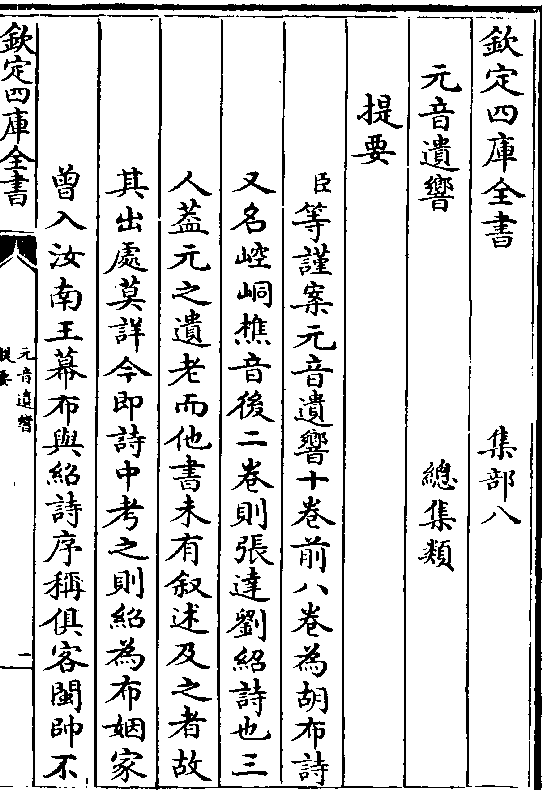 欽定四庫全書 集部八
元音遺響 總集類
提要
臣等謹案元音遺響十卷前八卷為胡布詩
又名崆峒樵音後二卷則張達劉紹詩也三
人葢元之遺老而他書未有叙述及之者故
其出處莫詳今即詩中考之則紹為布姻家
曾入汝南王幕布與紹詩序稱俱客閩帥不
欽定四庫全書
元音遺響
提要
二